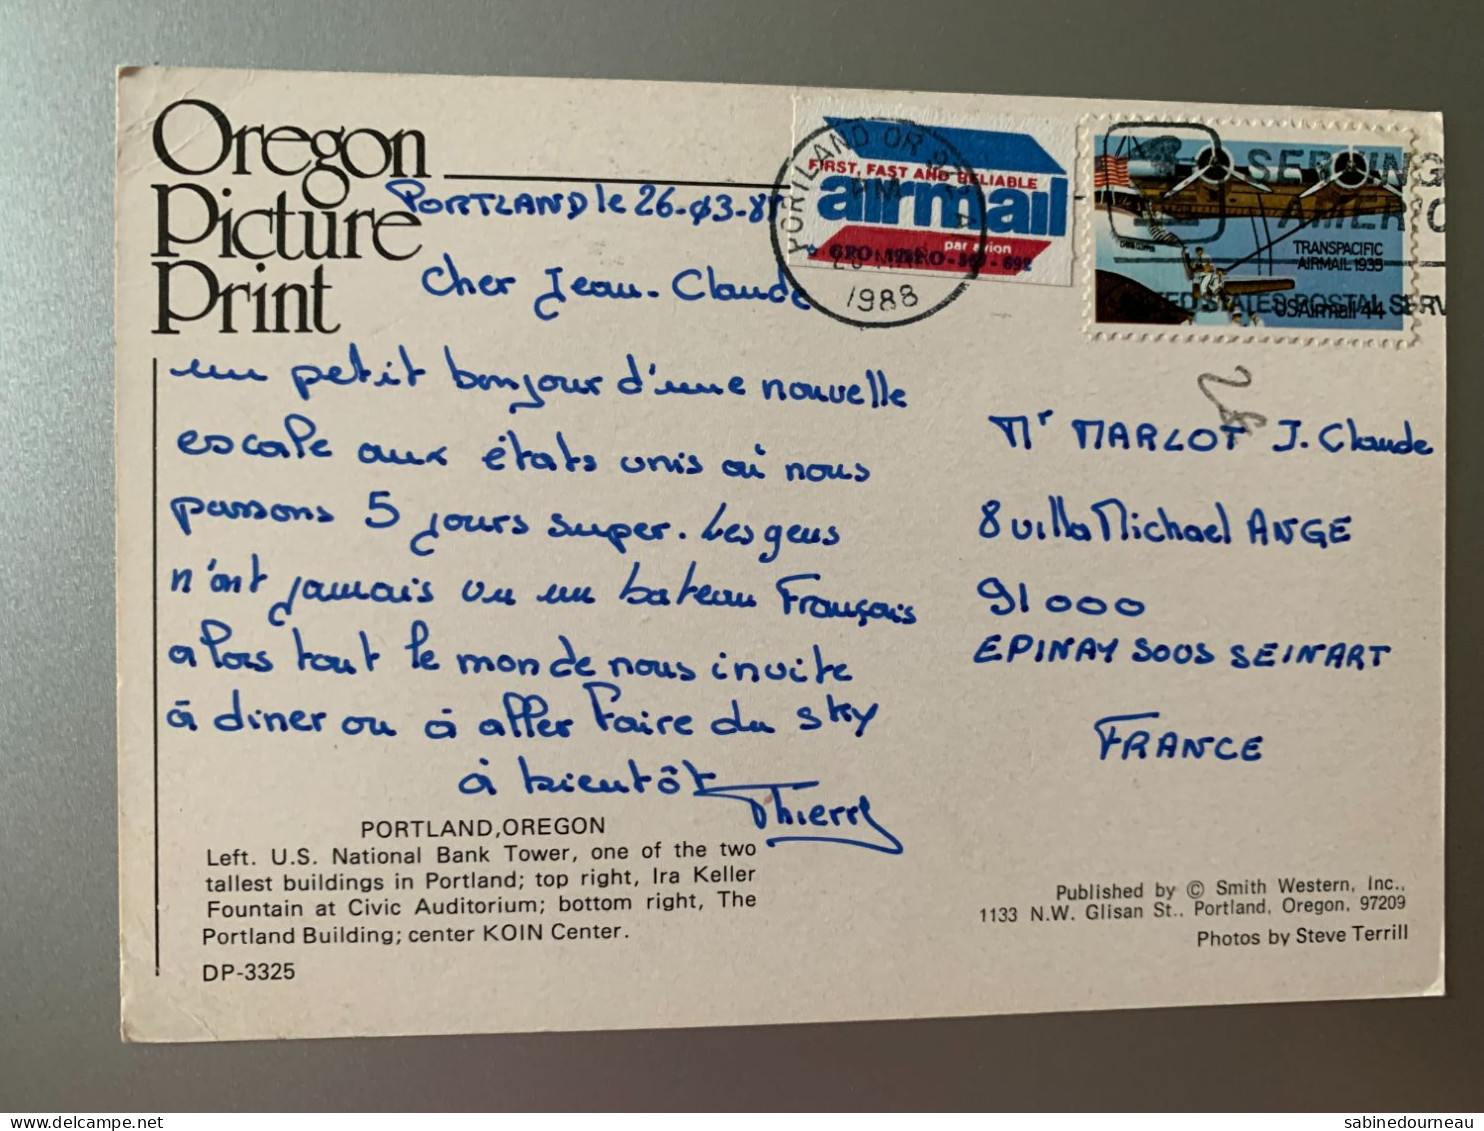 Oregon
Picture
Print
PORTLAND le 26-03-88
Cher Jean-Claude
un petit bonjour d'une nouvelle
escale aux états unis où nous
passons 5 jours super. Les gens
n'ont jamais vu un bateau Français
alors tout le monde nous invite
à diner ou à aller faire du sky
à bientôt Thierry
PORTLAND, OREGON
Left. U.S. National Bank Tower, one of the two
tallest buildings in Portland; top right, Ira Keller
Fountain at Civic Auditorium; bottom right, The
Portland Building; center KOIN Center.
DP-3325
PORTLAND OR
PM
1988
FIRST, FAST AND RELIABLE
airmail
par avion
SERVING
AMERIC
UNITED STATES POSTAL SERV
TRANSPACIFIC
AIRMAIL 1935
USAirmail 44
Mr MARLOT J. Claude
8 villa Michael ANGE
91000
EPINAY SOUS SEINART
FRANCE
Published by © Smith Western, Inc.,
1133 N.W. Glisan St., Portland, Oregon, 97209
Photos by Steve Terrill
delcampe.net
sabinedourneau